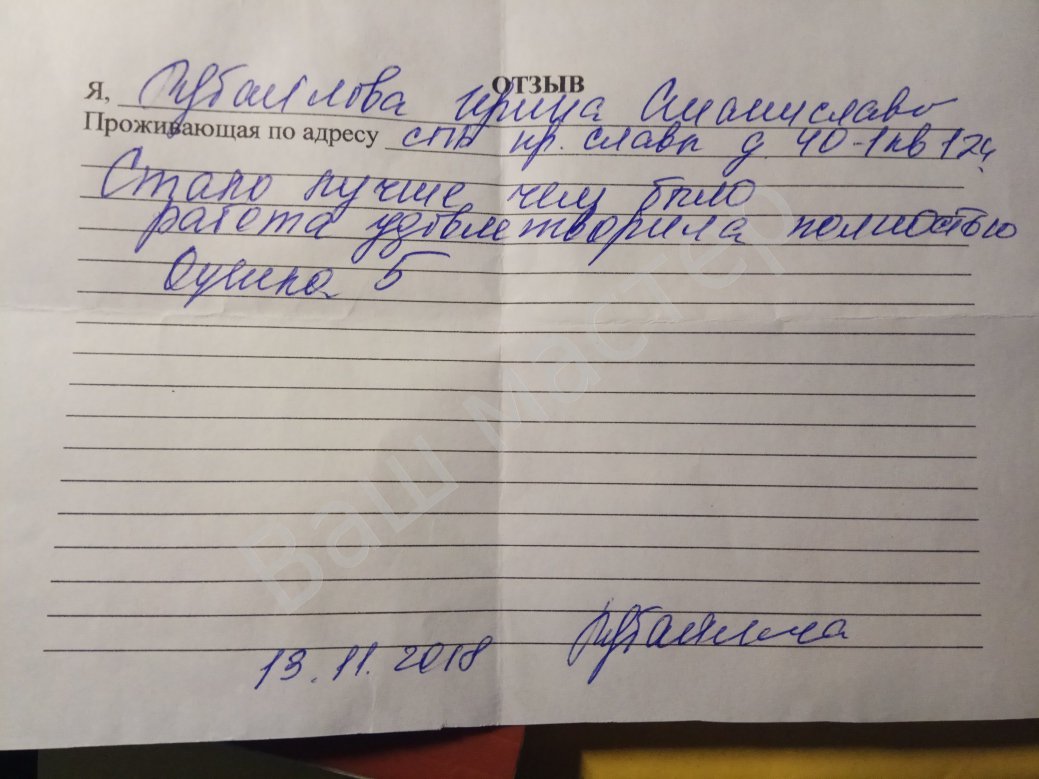 ОТЗЫВ
Я, Рубайлова Ирина Станиславо
Проживающая по адресу СПБ пр. Славы д. 40-1 кв 124
Стало лучше чем было
работа удовлетворила полностью
Оценка 5
Ваш мастер
13.11.2018